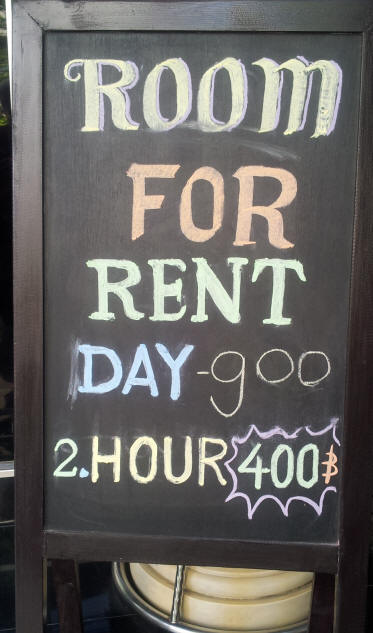 ROOM
FOR
RENT
DAY-900
2.HOUR 400฿